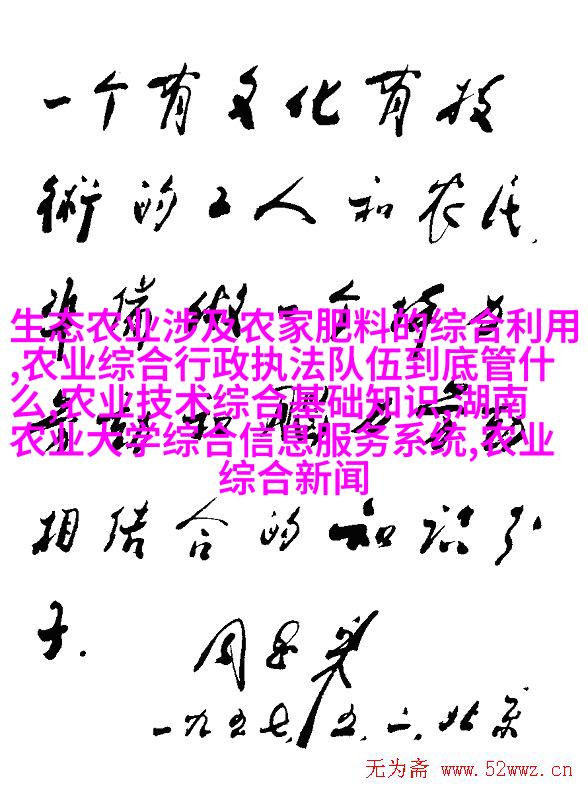 一个有文化有技
術的工人和农民,
准備做一个
生态农业涉及农家肥料的综合利用
,农业综合行政执法队伍到底管什
么,农业技术综合基础知识,湖南
农业大学综合信息服务系统,农业
综合新闻
相结合的知识分
子.
周恩来
一九五七,五,二,北京
无为斋 www.52wwz.cn